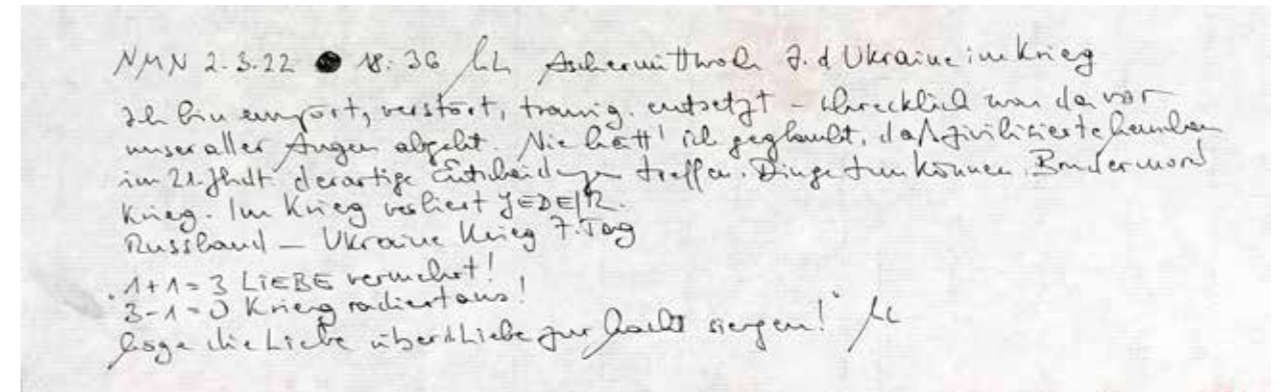 NMN 2.3.22 18:36 Aschermittwoch 7. d Ukraine im Krieg
Ich bin empört, verstört, traurig. entsetzt – schrecklich was da vor
unser aller Augen abgeht. Nie hätt' ich geglaubt, daß zivilisierte Menschen
im 21. Jhdt. derartige Entscheidungen treffen. Dinge tun können. Brudermord
Krieg. Im Krieg verliert JEDE/R.
Russland – Ukraine Krieg 7. Tag
1+1=3 LiEBE vermehrt!
3-1=0 Krieg radiert aus!
Möge die Liebe über d Liebe zur Macht siegen!